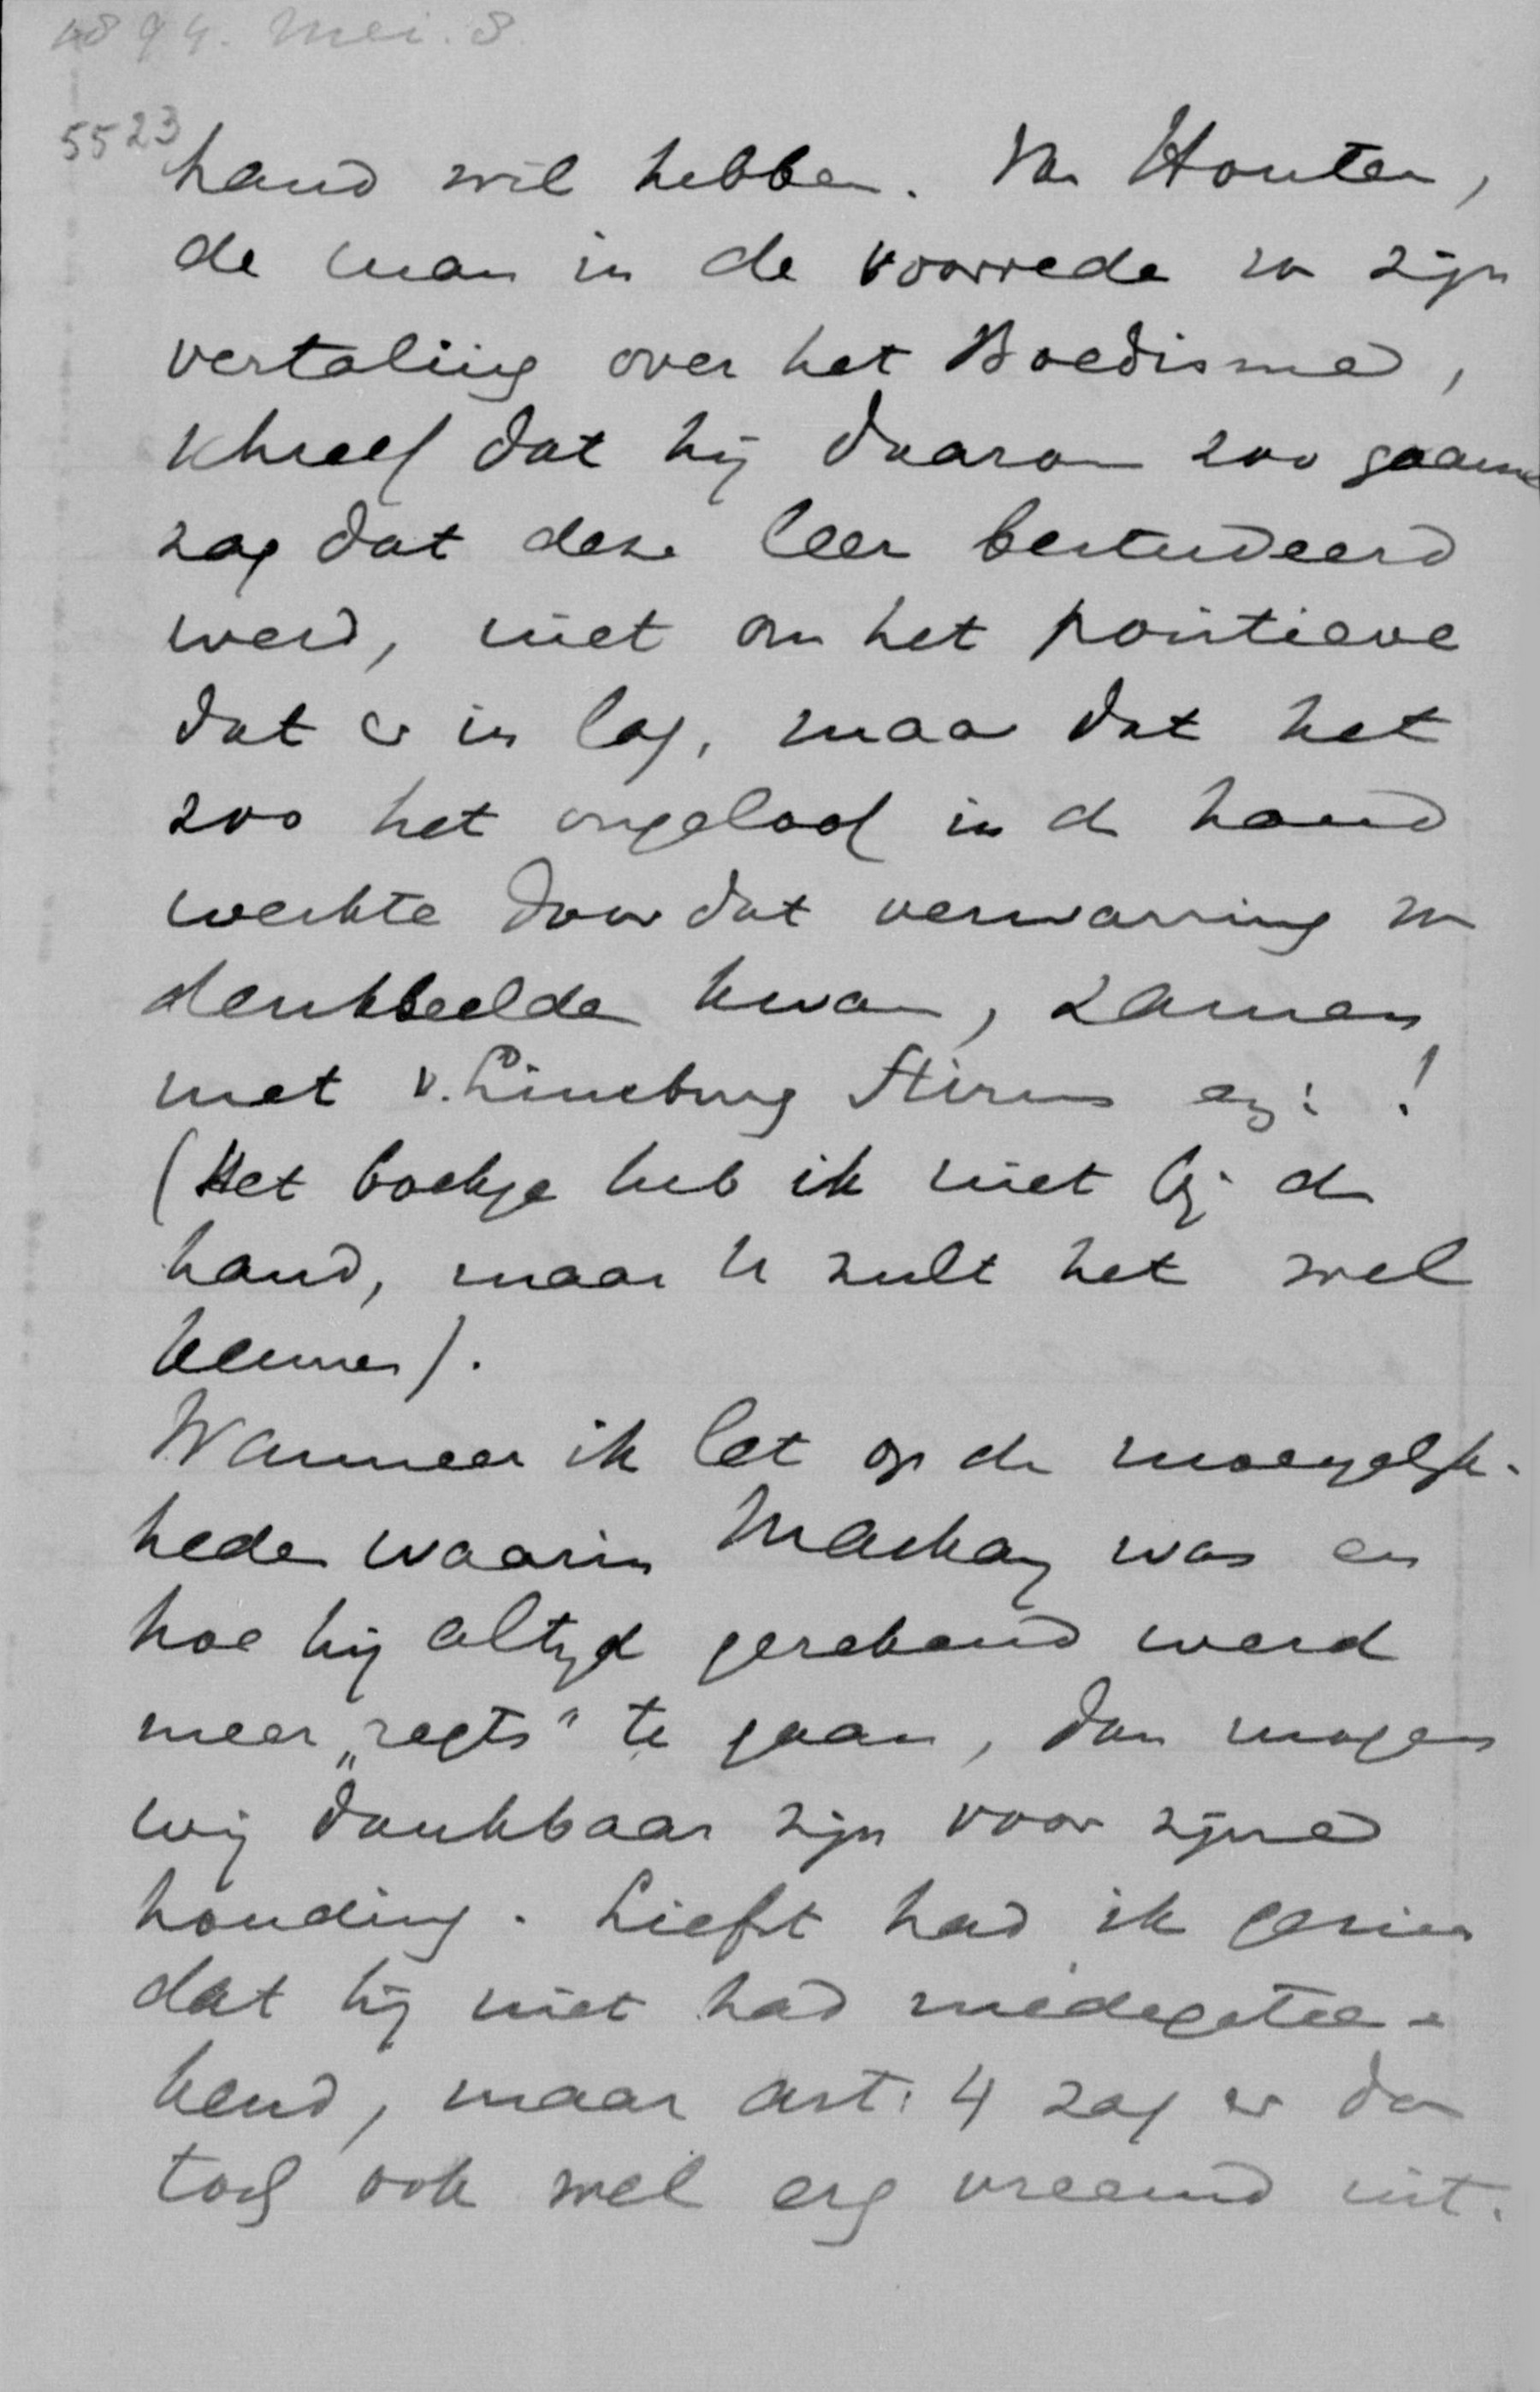 1894. Mei. 8.
5523
hand wil hebben. Van Houten,
de man in de voorrede van zijn
vertaling over het Boedisme,
schreef dat hij daarom zoo gaarne
zag dat deze leer bestudeerd
werd, niet om het positieve
dat er in lag, maar dat het
zoo het ongeloof in de hand
werkte doordat verwarring van
denkbeelden kwam, zamen
met v. Limburg Stirum enz: !
(Het boekje heb ik niet bij de
hand, maar U zult het wel
kennen).
Wanneer ik let op de moeyelijk-
heden waarin Mackay was en
hoe hij altijd gerekend werd
meer „regts" te gaan, dan mogen
wij dankbaar zijn voor zijne
houding. Liefst had ik gezien
dat hij niet had medegetee-
kend, maar art: 4 zag er dan
toch ook wel erg vreemd uit.